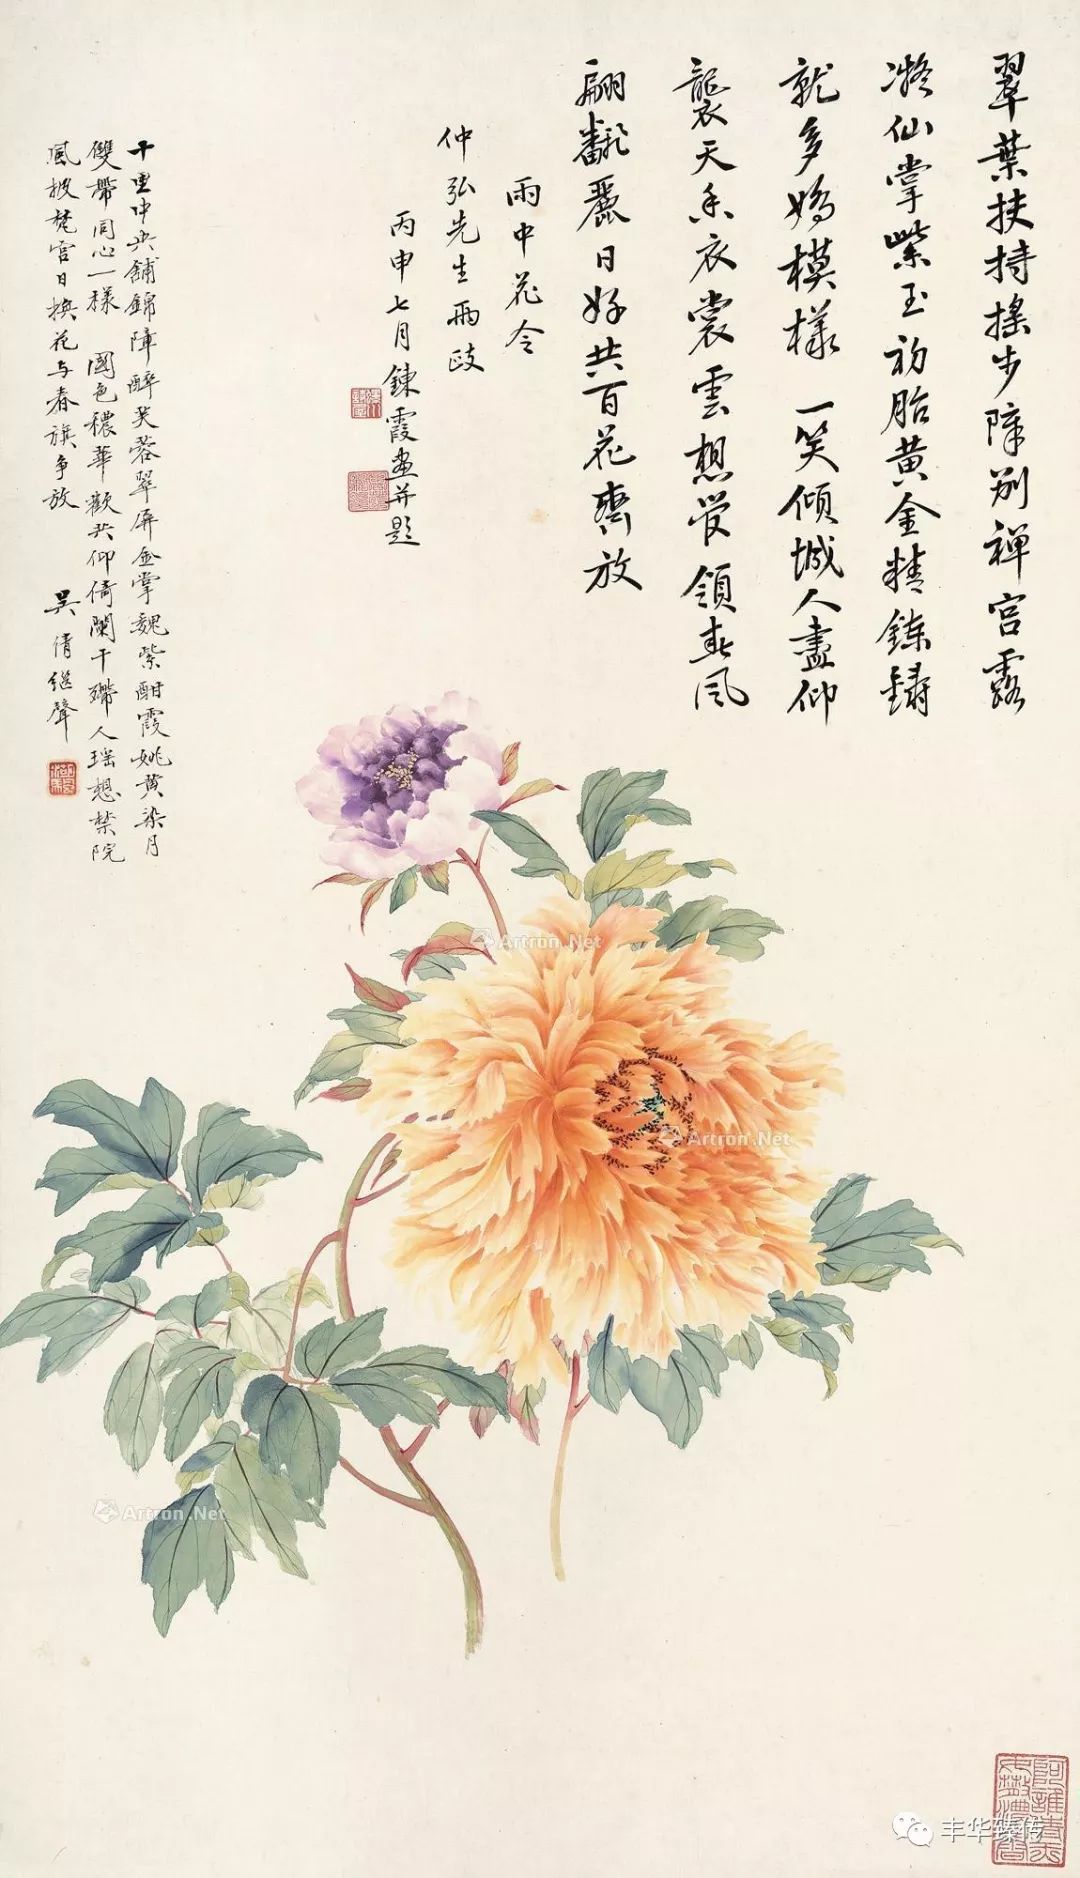 翠葉扶持搖步障別禪宮露
凝仙掌紫玉初胎黃金精鍊鑄
就多嬌模樣 一笑傾城人盡仰
襲天香衣裳雲想管領春風
翩翻麗日好共百花齊放
雨中花令
仲弘先生兩政
丙申七月鍊霞畫并題
千重中央鋪錦障醉芙蓉翠屏金掌魏紫酣霞姚黃染月
雙帶同心一樣 國色穠華歡共仰倚闌干 人瑤想禁院
風披梵宮日換花與春旗爭放
吳倩繼聲
Artron.Net
Artron.Net
Artron.Net
丰华臻传